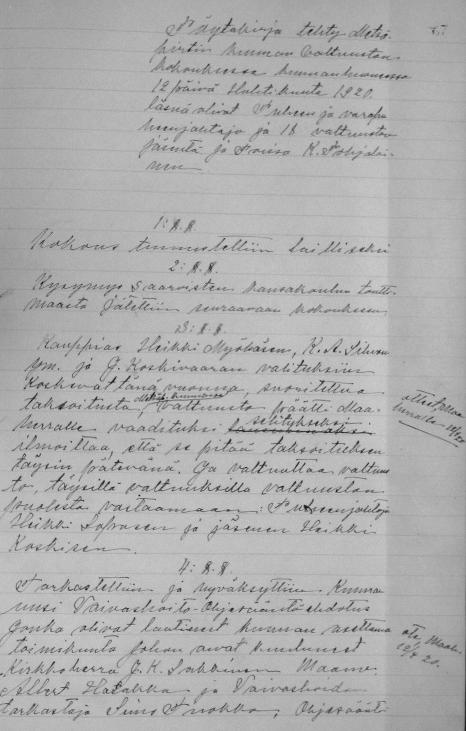 Pöytäkirja tehty Metsä-
pirtin kunnan valtuuston
kokouksessa kunnanhuoneessa
12 päivä Huhtikuuta 1920.
läsnä olivat Puheen ja varapu-
heenjohtaja ja 18 valtuuston
jäsentä ja K. Pohjalai-
nen
1: §.§.
Kokous tunnustettiin lailliseksi
2: §.§.
Kysymys Saaroisten kansakoulun tontti-
maasta jätettiin seuraavaan kokoukseen
3: §.§.
Kauppias Heikki Myöhäsen, K. A.
ym. ja J. Koskivaaran valituksiin
koskevat tänä vuonna, suoritettua
taksoitusta, Metsäp. kunnan valtuusto päätti Maa-
herralle vaadituksi selitykseksi
ilmoittaa, että se pitää taksoituksen
täysin pätevänä. Ja valtuuttaa valtuus-
to, täysillä valtuuksilla valtuuston
puolesta vastaamaan: Puheenjohtaja
Heikki Loposen ja jäsenen Heikki
Koskisen.
4: §.§.
Tarkastettiin ja hyväksyttiin Kunna
uusi Vaivashoito-Ohjesääntö ehdotus
Jonka olivat laatineet kunnan asettama
toimikunta johon ovat kuuluneet
Kirkkoherra J. K. Maame.
Albert Hatakka ja Vaivashoidon
tarkastaja Simo Puokka, Ohjesääst-
ote Maah.
12/4 20.